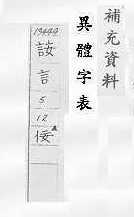 補充資料
異體字表
13444
言
5
12
佞